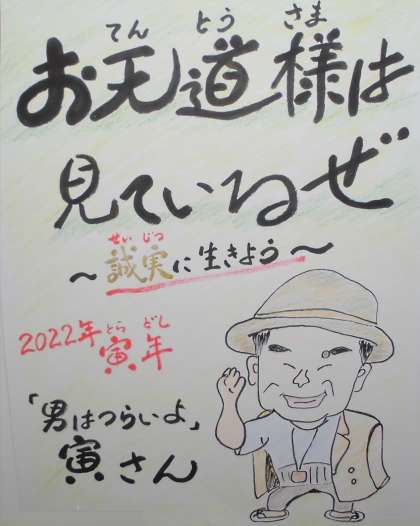 てん とう さま
お天道様は
見ているぜ
せい じつ
～誠実に生きよう～
とら どし
2022年寅年
「男はつらいよ」
寅さん